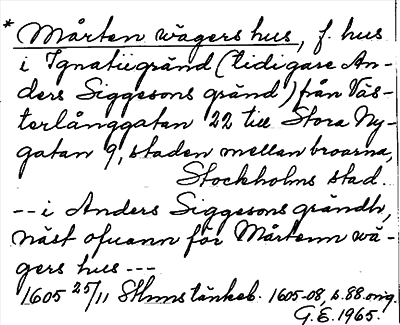 * Mårten wägers hus, f. hus
i Ignatiigränd (tidigare An-
ders Siggesons gränd) från Väs-
terlånggatan 22 till Stora Ny-
gatan 9, staden mellan broarna,
Stockholms stad.
-- i Anders Siggesons grändh,
näst ofuann för Mårtenn wä-
gers hus ---
1605 25/11 Sthms tänkeb. 1605-08, s. 88. orig.
G.E. 1965.